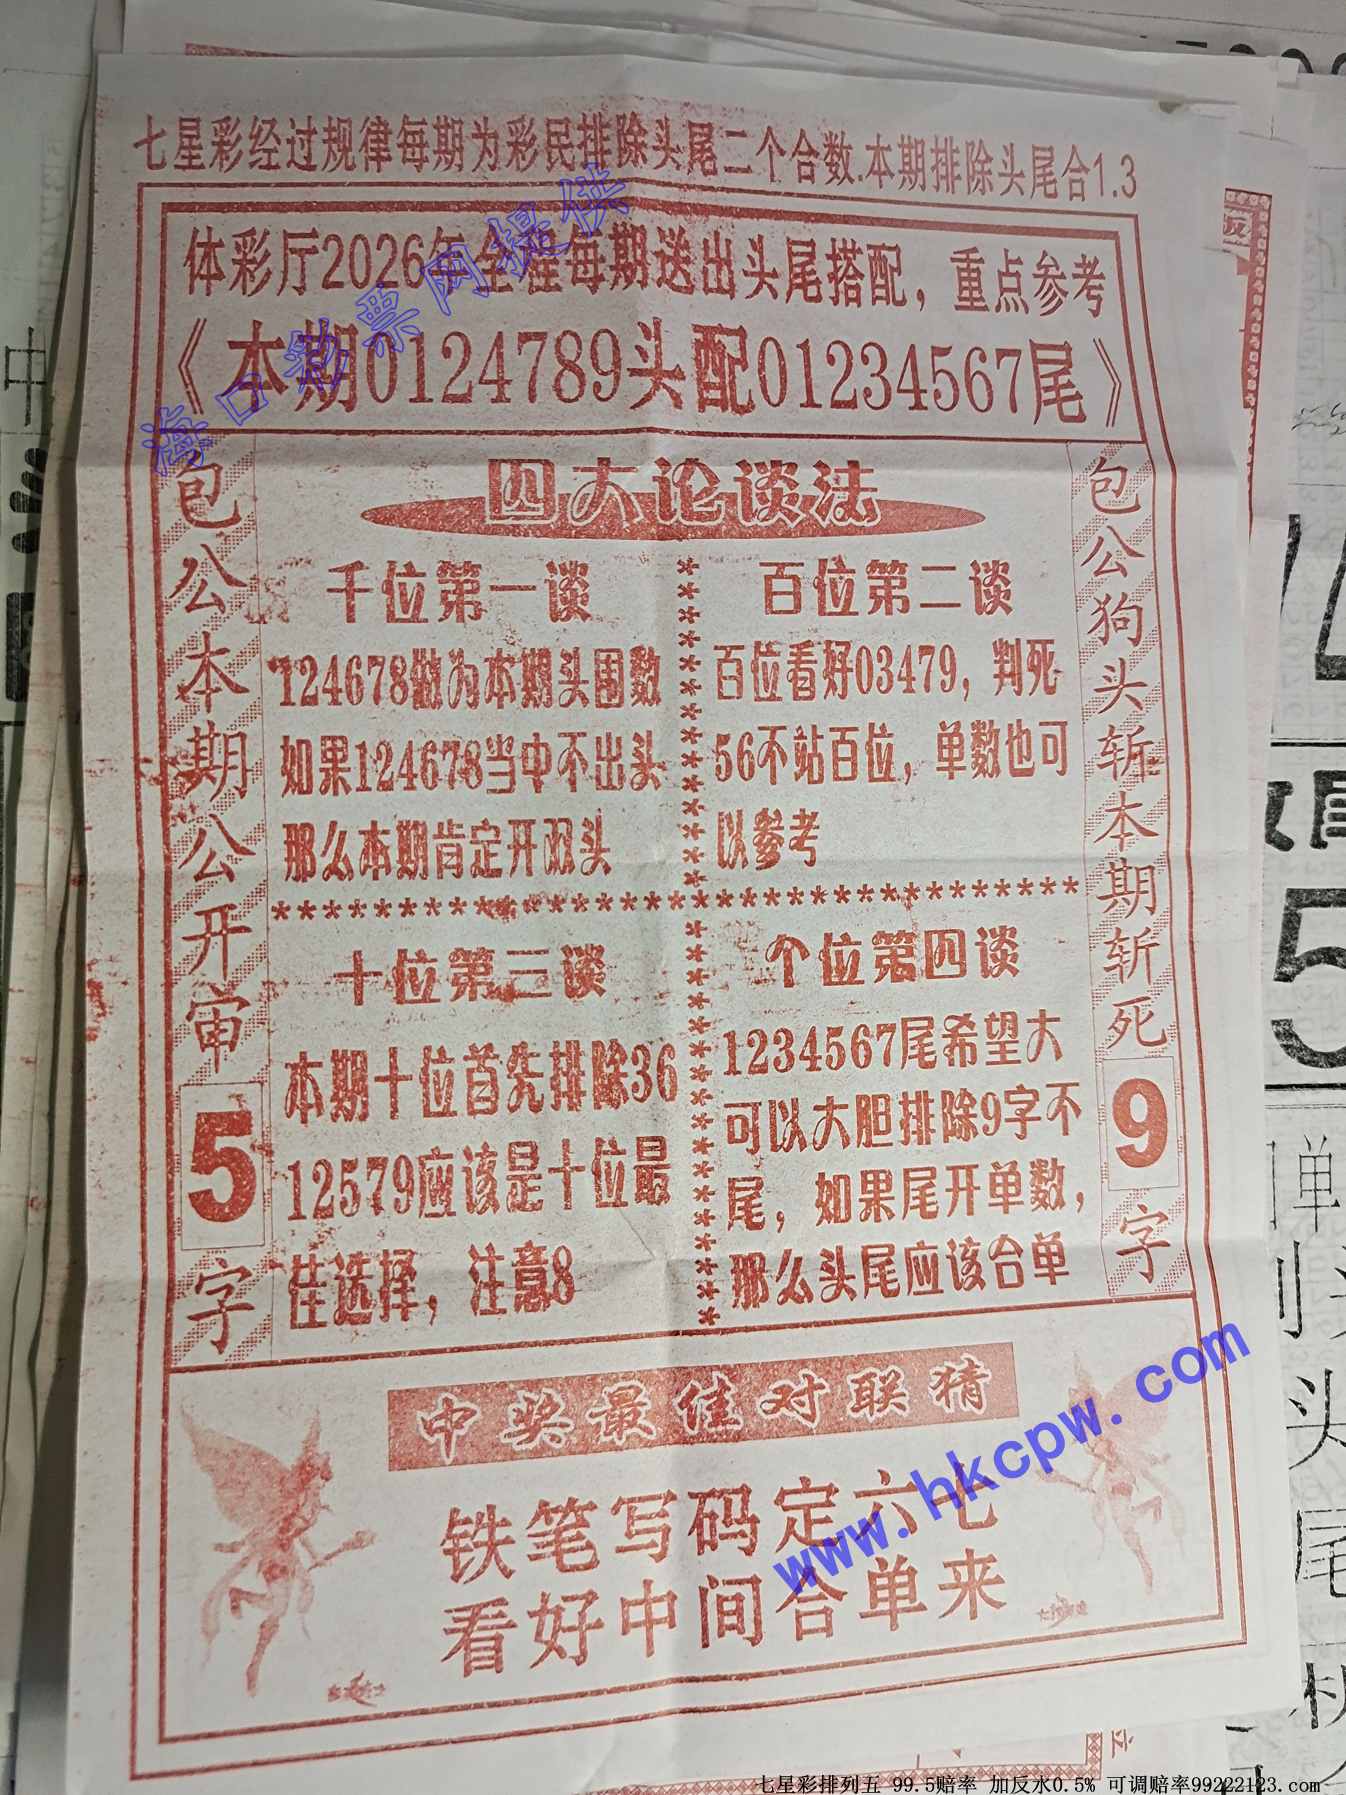 七星彩经过规律每期为彩民排除头尾二个合数.本期排除头尾合1.3
体彩厅2026年全程每期送出头尾搭配，重点参考
《本期0124789头配01234567尾》
海口彩票网提供
包公本期公开审5字
四大论谈法
千位第一谈
124678做为本期头围数
如果124678当中不出头
那么本期肯定开双头
百位第二谈
百位看好03479，判死
56不站百位，单数也可
以参考
十位第三谈
本期十位首先排除36
12579应该是十位最
佳选择，注意8
个位第四谈
1234567尾希望大
可以大胆排除9字不
尾，如果尾开单数，
那么头尾应该合单
包公狗头斩本期斩死9字
中奖最佳对联猜
铁笔写码定六七
看好中间合单来
www.hkcpw.com
七星彩排列五 99.5赔率 加反水0.5% 可调赔率99222123.com